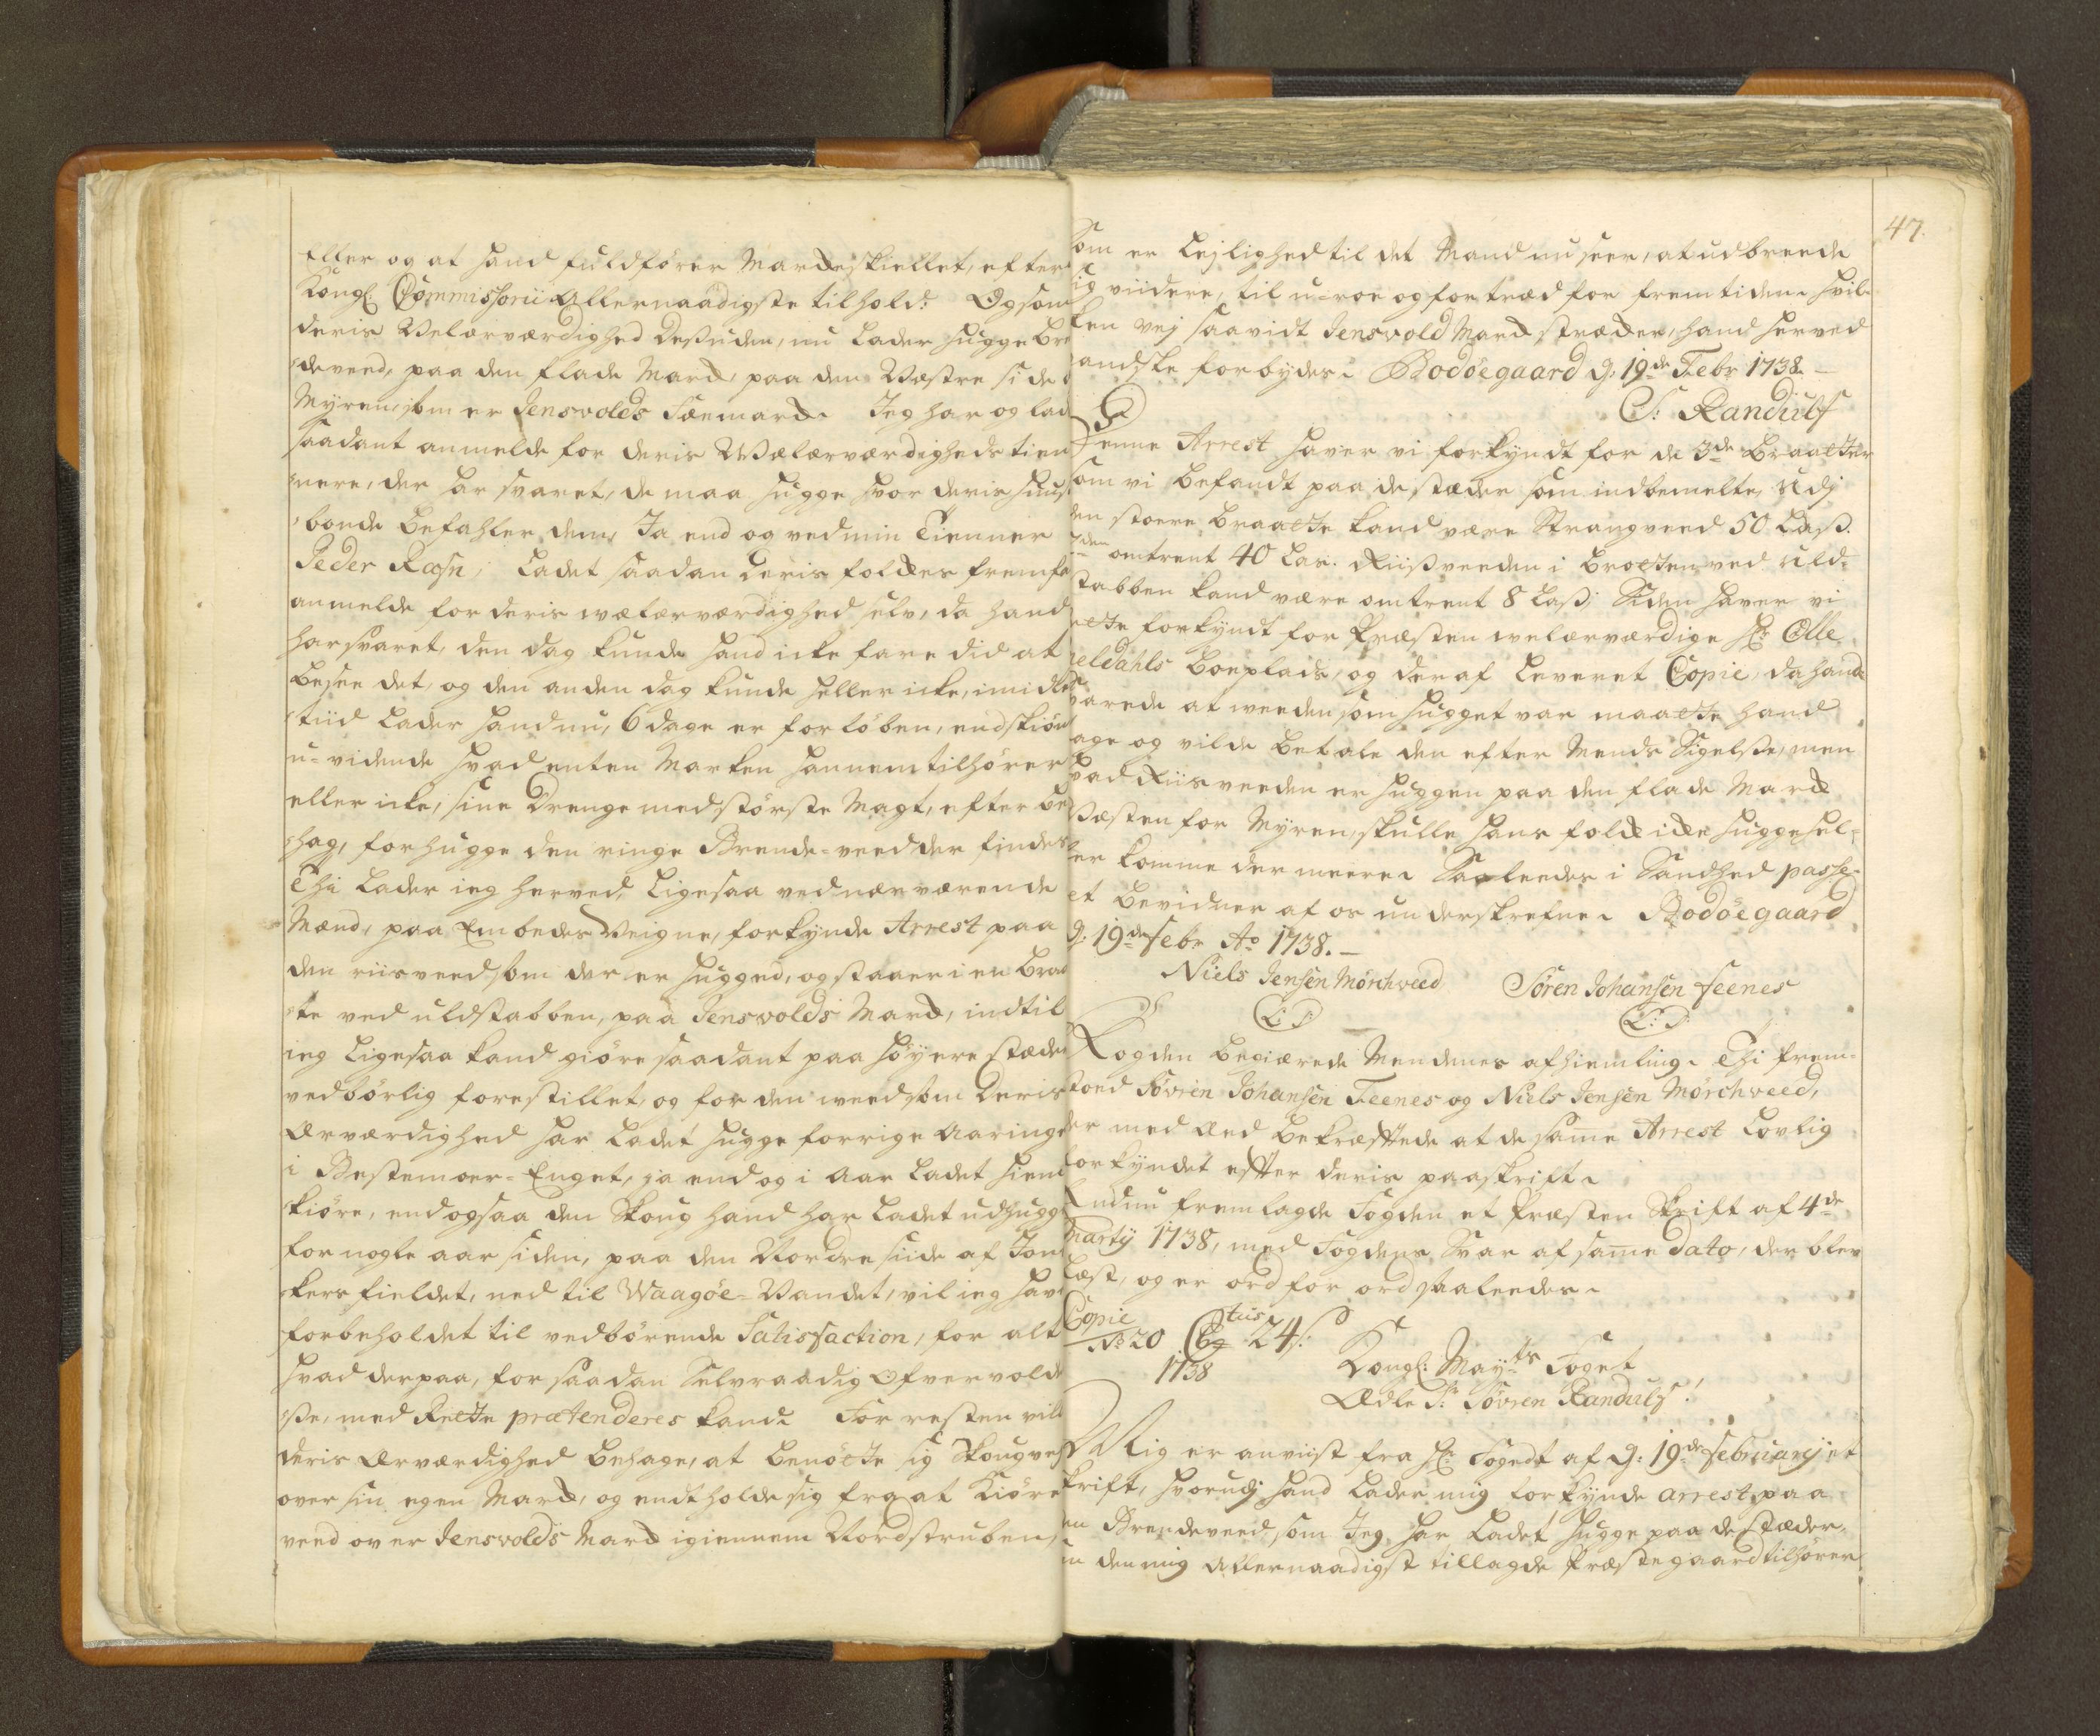 eller og at hand fuldfører Mardeskiellet, efter
Kongl: Commissorii Allernaadigste tilhold. Og som
deris Velærværdighed desuden, nu lader hugge bren
deveed, paa den flade Mard, paa den Væstre side
Myren, som er Jensvolds Fæemard. Jeg har og lad
saadant anmelde for deris Wælærværdigheds tien
nere, der har svaret, de maa hugge hvor deris huus
bonde befahler dem, Ja end og ved min Tienner
Peder Rasn, ladet saadan deris foldes fremfa
anmelde for deris wælærværdighed selv, da hand
har svaret, den dag kunde hand icke fare did at
besee det, og den anden dag kunde heller icke, imidler
tiid lader hand nu, 6 dage er forløben, endskiøn
u-vidende hvad enten Marken hannem tilhører
eller icke, sine Drenge med største Magt, efter be
hag, forhugge den ringe Brende-veed der findes
Thi lader ieg herved, ligesaa ved nærværende
Mænd, paa Embedes Veigne, forkynde Arrest paa
den riisveed som der er hugged, og staaer i en braa
te ved uldstabben, paa Jensvolds Mard, indtil
ieg ligesaa kand giøre saadant paa høyere stæder
vedbørlig forestillet, og for den weed som Deris
Ærværdighed har ladet hugge forrige Aaringe
i Bestemoer-Enget, ja end og i Aar ladet hiem
kiøre, end ogsaa den Skoug hand har ladet udhugge
for nogle aar siden, paa den Nordre siide af Jon
kersfieldet, ned til Waagøe-Vandet, vil ieg have
forbeholdet til vedbørende Satisfaction, for alt
hvad derpaa, for saadan Selvraadig Ofvervolde
se, med Rette prætenderes kand. For resten vil
deris Ærværdighed behage, at benøtte sig Skougvej
over sin egen Mard, og endtholde sig fra at Kiøre
veed over Jensvolds Mard igiennem Nordstruben,
47.
Som er Lejlighed til det Mand nu seer, at udbreede
sig viidere, til u-roe og fortræd for fremtiden. hvil-
ken vej saavidt Jensvold Mard stræder, hand herved
gandske forbydes. Bodøegaard d: 19de Febr 1738.
S: Randulf
Denne Arrest haver vi forkyndt for de 3de Braatter
som vi befandt paa de stæder som indbemelte, Udj
den stoere braatte kand være Strangveed 50 Lass.
2den omtrent 40 Las. Riissveeden i brotten ved Uld-
stabben kand være omtrent 8 Lass. Siden haver vi
rette forkyndt for Præsten welærværdige Hr. Olle
eldahls boeplads, og deraf leveret Copie, da hand
svarede at weeden som hugget var maatte hand
tage og vilde betale den efter Mends Sigelse, men
hvad Riisveeden er huggen paa den flade Mard
Væsten for Myren, skulle hans fold icke hugge hel-
ler komme der meere. Saaleedes i Sandhed passe-
ret bevidner af os underskrefne. Bodøegaard
d: 19de Febr Ao 1738.
Niels Jensen Mørchveed Søren Johansen Feenes
L:S: L:S:
Fogden begiærede Mendenes afhiemling. Thi frem-
stoed Søvren Johansen Feenes og Niels Jensen Mørchveed,
der med Æed bekræftede at de same Arrest Lovlig
forkyndet efter deris paaskrift.
Endnu fremlagde Fogden et Præsten Skrift af 4de
Martij 1738, med Fogdens Svar af same Dato, der blev
Læst, og er ord for ord saaleedes.
Copie
No 20 24 s:
1738
Kongl: Maytts Foget
Ædle Sr. Søvren Randulf!
Mig er anviist fra Hr. Fogedt af d: 19de Februarij et
skrift, hvorudj hand lader mig forkynde arrest paa
en Brendeveed, som Jeg har ladet hugge paa de stæder,
den mig Allernaadigst tillagde Præstegaard tilhører